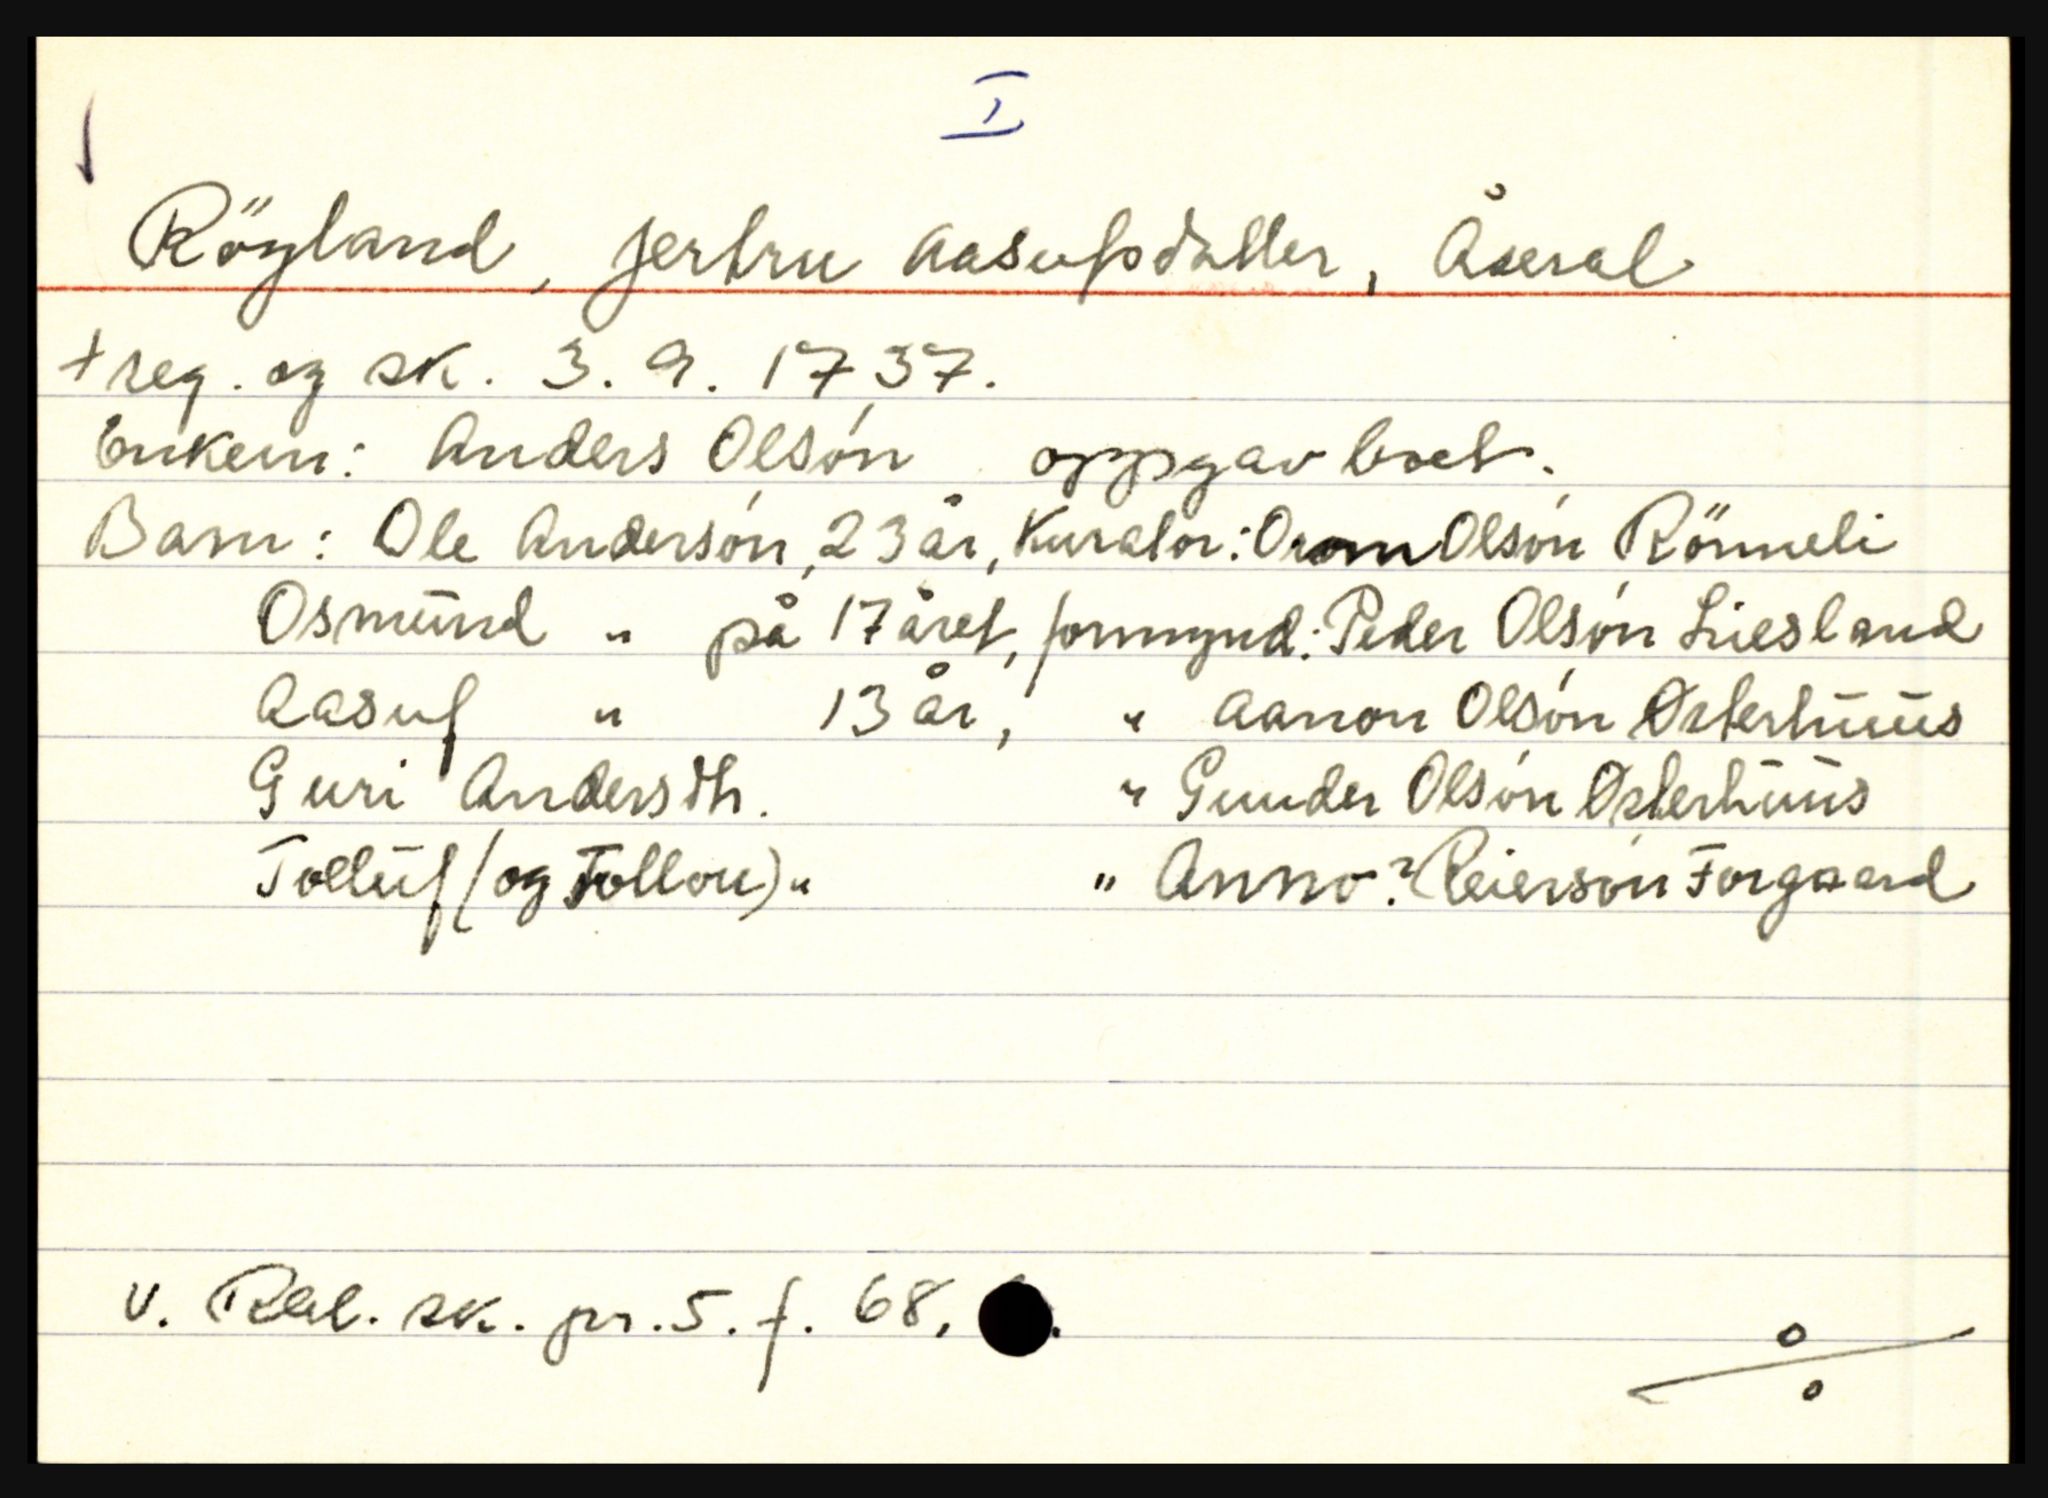 I
Röyland, Jertru Aasufsdatter, Åseral
+ reg. og sk. 3. 9. 1737.
Enkem: Anders Olsón oppgav boet.
Barn: Ole Andersón, 23 år, Kurator: Orom Olsón Rönneli
Osmund " på 17 året, formynd: Peder Olsón Liesland
Aasuf " 13 år, " Aanon Olsón Østerhuus
Guri Andersdtr. " Gunder Olsón Østerhuus
Tolluf (og Follou) " " Anno? Reiersón Forgaard
v. Råb. sk. pr. 5. f. 68,